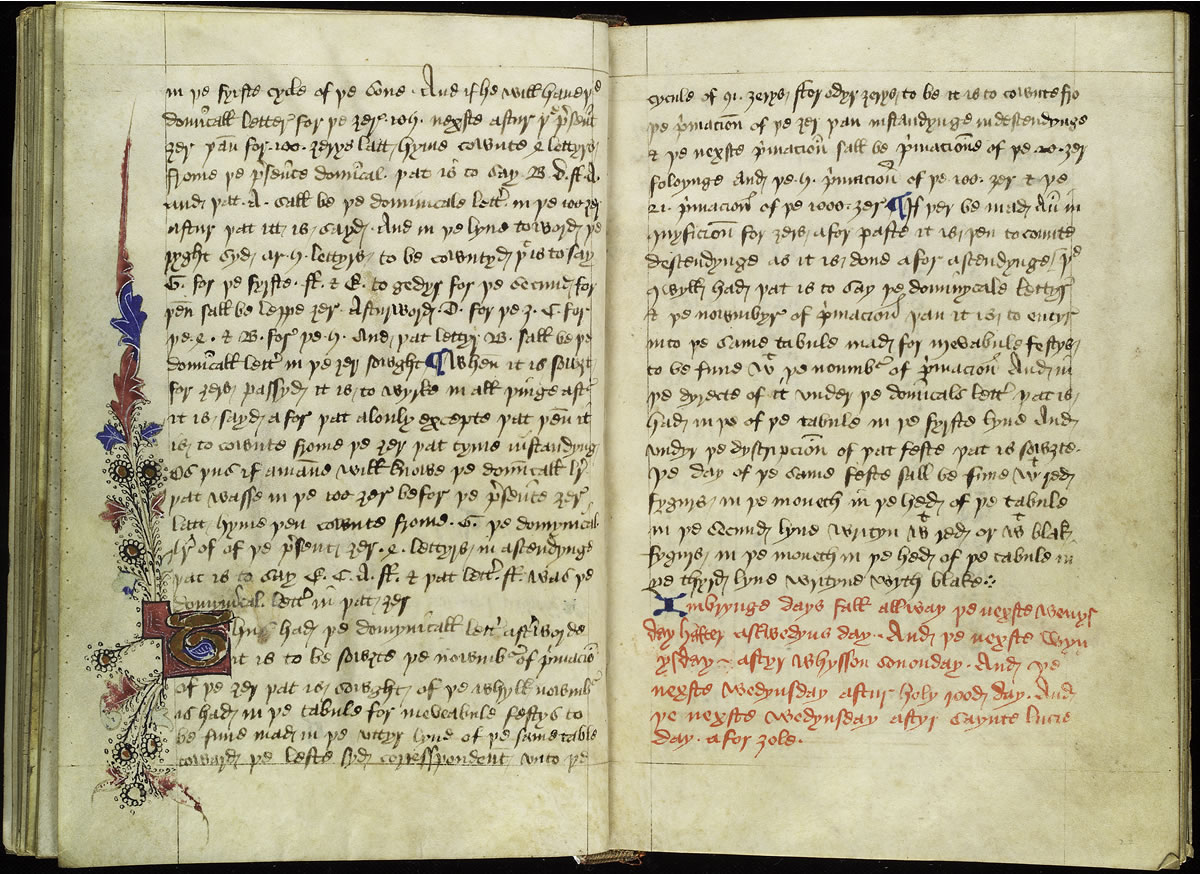 in þe fyrste cycle of þe Sone. And if he will have þe
domicall letter for þe ȝer. 104. nexste aftur þe present
ȝer þan for .100. ȝerys latt hyme cownte 4 lettyrs
frome þe presente domical. þat is to say B. D. ff. A.
and þat .A. sall be þe dominicale letter in þe 100 ȝer
aftur þat itt is sayd. And in þe lyne toword þe
ryght syd ar 4. lettyrs to be cowntyd þat is to say
G. for þe fyrste. ff. & E. to gedyr for þe secund for
þen sall be leppe ȝer. Afturword. D. for þe 3. C. for
þe. & B. for þe 4. And þat lettyr B. sall be þe
domicall letter in þe ȝer sowght ¶ When it is sowȝt
for ȝers passyd it is to wyrke in all þinge aftr
it is sayd afor þat alonly excepte þat þen it
is to cownte frome þe ȝer þat tyme instandyng
Os þus if a mane will knowe þe domicall lr
þat wasse in þe 100 ȝer befor þe presente ȝer
latt hyme þen cownte frome .G. þe domynical
lr of of þe present ȝer. 4. lettyrs in astendynge
þat is to say E. C. A. ff. & þat lettr. ff. was þe
dominical. lettr in þat ȝer
Thus had þe domynicall lettr aftrworde
it is to be sowȝte þe nowmber of primacion
of þe ȝer þat is sowght of þe whyll nowmbr
is had in þe tabule for meveabule festys to
be fune mad in þe uttyr lyne of þe same table
toward þe lefte syd correspondent unto þe
cycule of ȝerys, ffor odyr ȝerys to be it is to cownte fro
þe primacion of þe ȝer þan instandynge in destendynge
& þe nexste primacion sall be primacione of þe ȝer
foloynge And þe 4. primacion of þe 100. ȝer & þe
21. primacion of þe 1000. ȝer ¶ If þer be mad An in
quysicion for ȝers afor paste it is þen to counte
destendynge as it is done afor astendynge, þe
qwyll had þat is to say þe domynycale lettyr
& þe nowmbyr of primacion þan it is to entyr
into þe same tabule mad for mevabule festys
to be fune wt þe noumber of primacion And in
þe dyrecte of it under þe domicale lettr þat is
had in þe of þe tabule in þe fyrste lyne And
undyr þe dyscrypcion of þat feste þat is sowȝte.
þe day of þe same feste sall be fune wt red
fygurs in þe moneth in þe hed of þe tabule
in þe secund lyne writyn wt red or wt blak
fygurs in þe moneth in þe hed of þe tabule in
þe thyrd lyne writyne wyth blake
Imbrynge days fall allway þe nexste wenys
day aftter askwedyns day. And þe nexste Wyn
ysday astyr Whysson sononday. And þe
nexste wedynsday aftur holy rood day. And
þe nexste wedynsday aftyr Saynte lucie
day. afor ȝole.